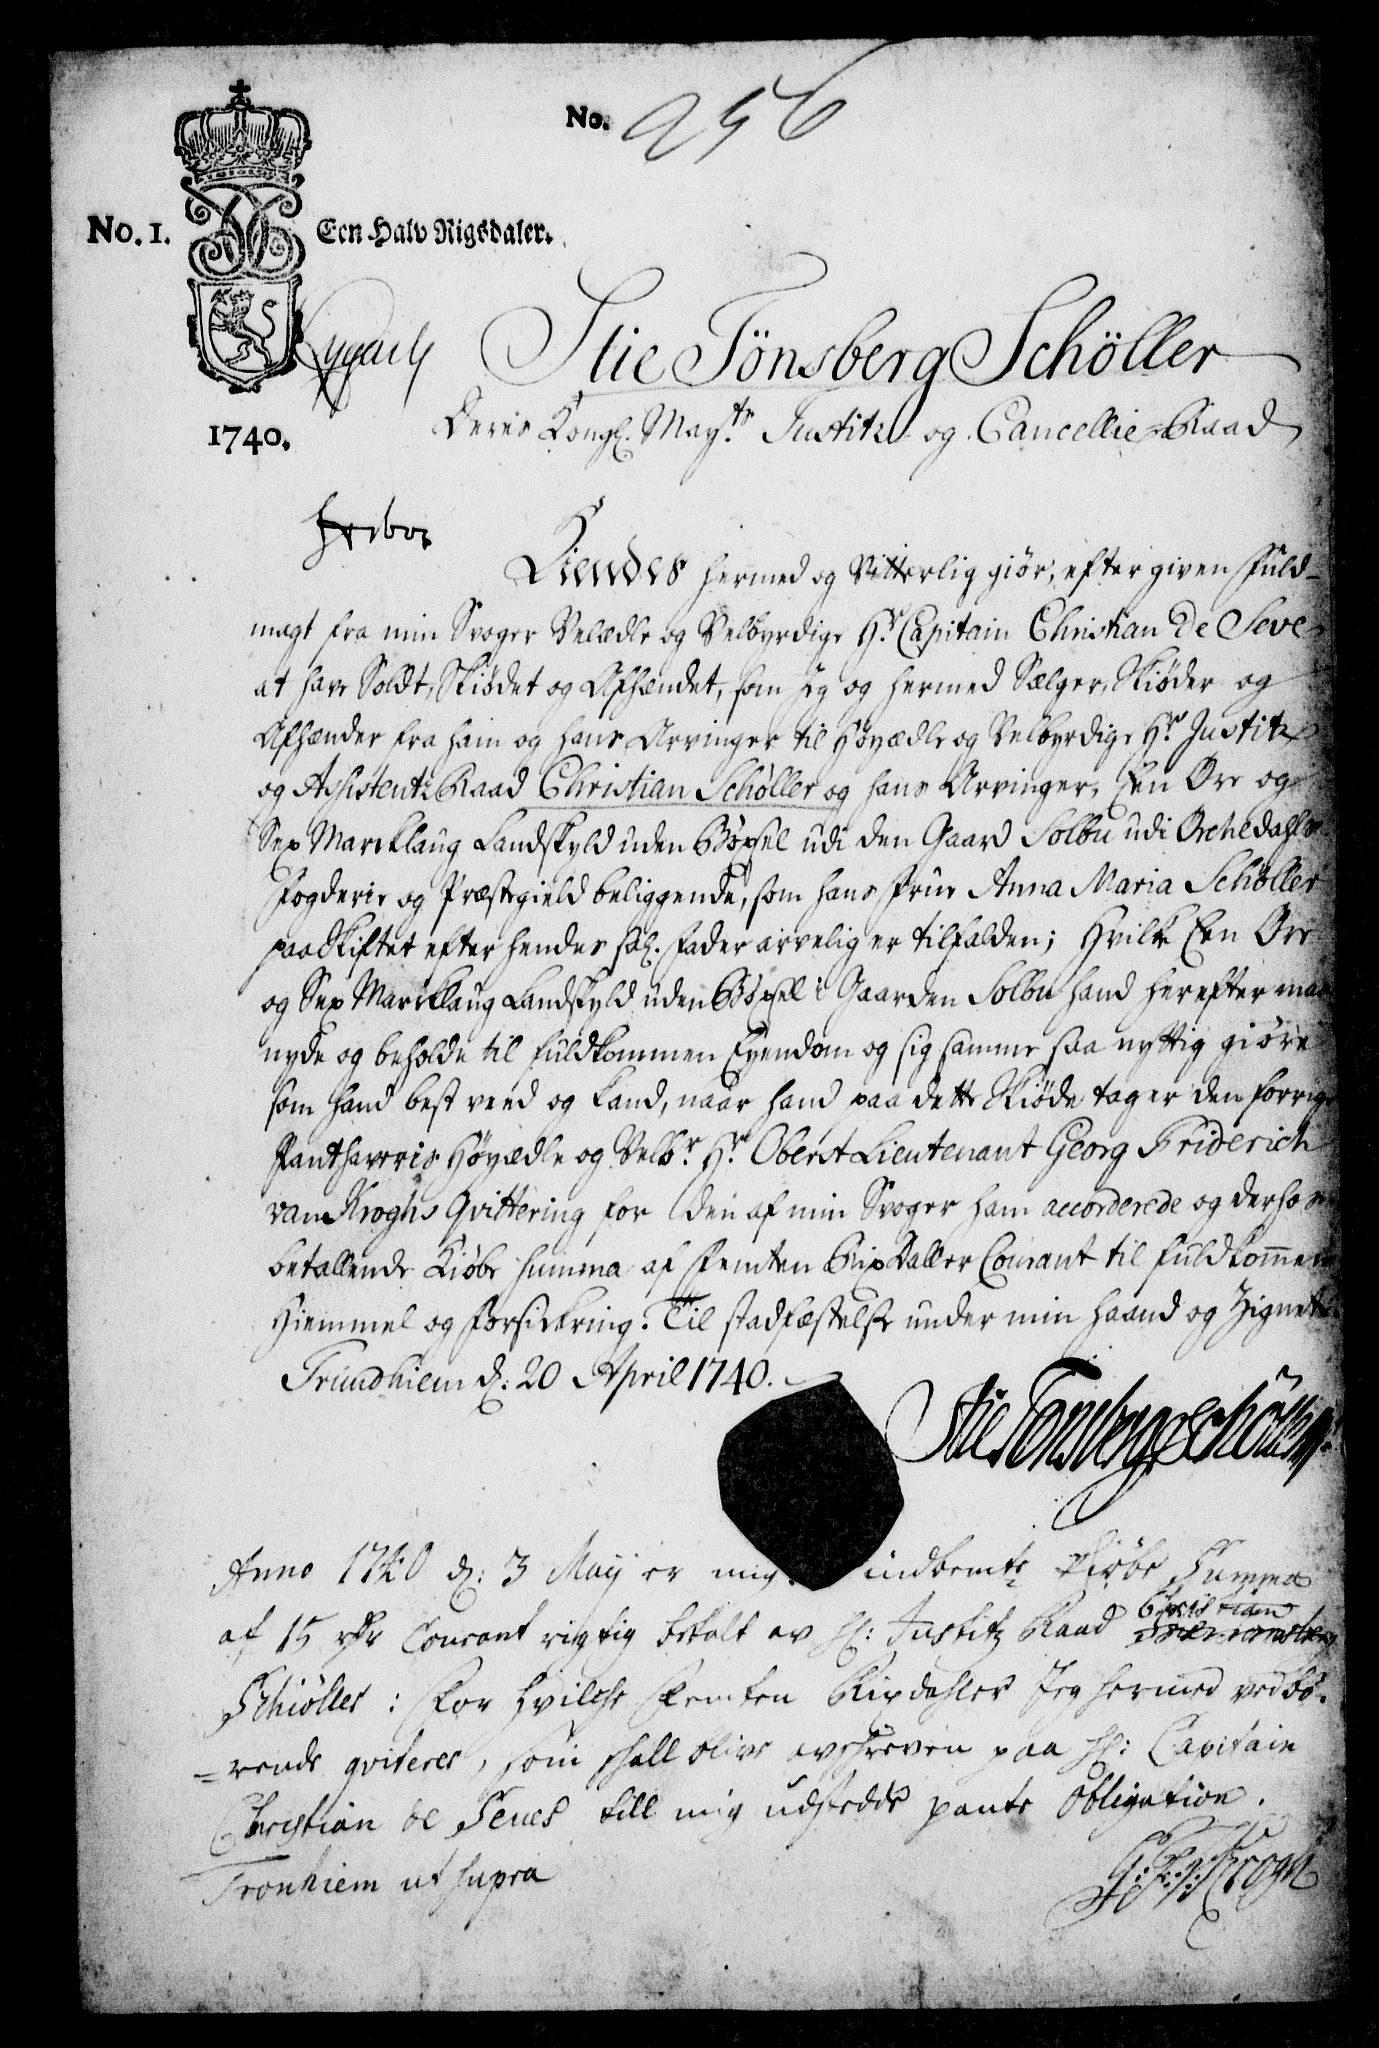 No. 256
No. 1. Een Halv Rigsdaler.
1740.
Stie Tönsberg Schöller
Deris Kongl. Mayts. Justitz og Cancellie-Raad
Kiendes hermed og Vitterlig giör, efter given Fuld-
magt fra min Svoger Velædle og Velbyrdige Hr. Capitain Christian de Seve
at have Soldt, Skiödet og Afhændet, som jeg og hermed Sælger, Skiöder og
Afhænder fra ham og hans Arvinger til Höyædle og Velbyrdige Hr. Justitz
og Assistentz Raad Christian Schøller og hans Arvinger, Een Öre og
Sex Marcklaug Landskyld uden Böxsel udi den Gaard Solbu udi Orchedahls
Fogderie og Præstegield beliggende, som hans Frue Anna Maria Schøller
paa Skiftet efter hendes sal. Fader arvelig er tilfalden; Hvilke Een Öre
og Sex Marcklaug Landskyld uden Böxsel i Gaarden Solbu hand herefter maa
nyde og beholde til fuldkommen Eyendom og sig samme saa nyttig giöre
som hand best veed og kand, naar hand paa dette Skiöde tager den forrige
Pantharris Höyædle og Velbr. Hr. Oberst Lieutenant Georg Friderich
van Kroghs Qvittering for den af min Svoger ham accorderede og derfor
betallende Kiöbe Summa af Femten Rixdaller Courant til fuldkommen
Hiemmel og Forsickring. Til stadfæstelse under min Haand og Zignete.
Trundhiem d: 20 April 1740.
Stie Tonsberg Schöller
Anno 1740 d: 3 Maij er mig indbemte Kiöbe Summa
af 15 rdr Courant rigtig betalt av Hl: Justitz Raad Christian
Schiöller: For hvilche Femten Rixdahler Jeg hermed vedbö-
-rende qviterer, som skall blive avskreven paa Hl: Capitain
Christian de Seves till mig udstedde pante Obligation.
Tronhiem ut supra
G: F: v: Krogh